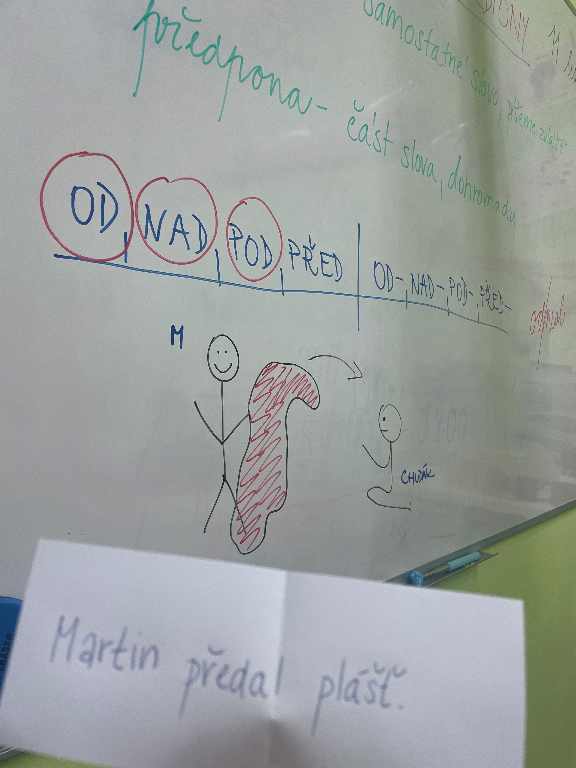 předpona - část slova, dohromady
samostatné slovo, píšeme zvlášť
OD, NAD, POD, PŘED
OD-, NAD-, POD-, PŘED-
M
CHUDÁK
Martin předal plášť.